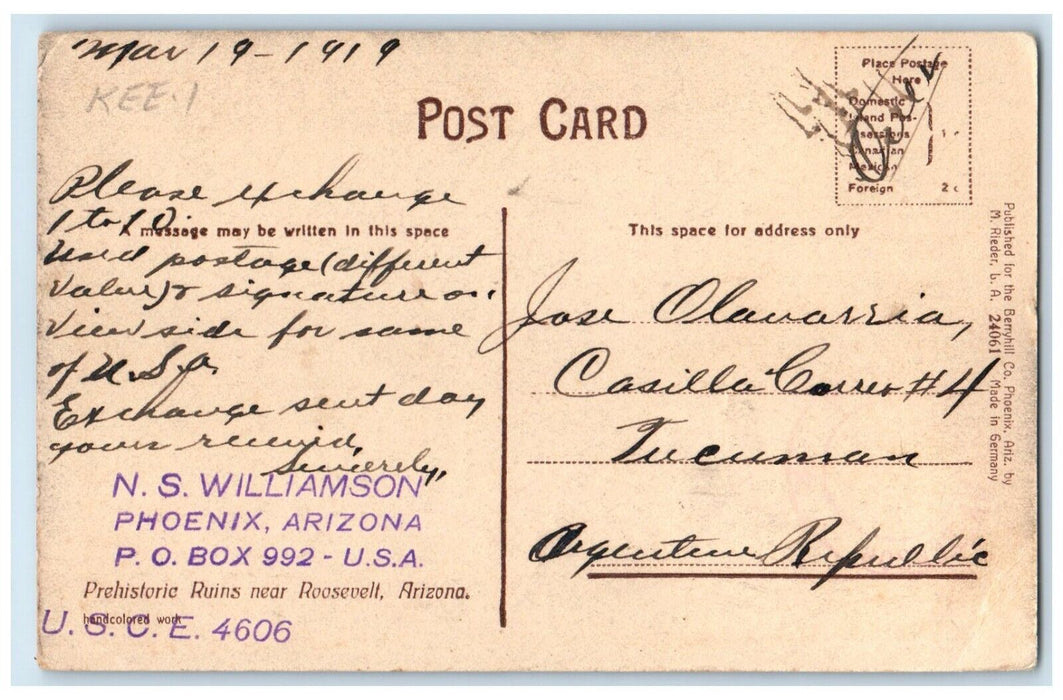 Mar 19-1919
KEE-1
POST CARD
Place Postage
Here
Domestic
Foreign 2c
Over
Please exchange
1 to 10
A message may be written in this space
used postage (different
value) & signature on
view side for same
of U.S.A.
Exchange sent day
yours received.
Sincerely,
N. S. WILLIAMSON
PHOENIX, ARIZONA
P. O. BOX 992 - U.S.A.
Prehistoric Ruins near Roosevelt, Arizona.
handcolored work
U. S. C. E. 4606
This space for address only
Jose Olavarria,
Casilla Correo #4
Tucuman
Argentine Republic
Published for the Berryhill Co. Phoenix, Ariz. by
M. Rieder, L. A. 24061 Made in Germany